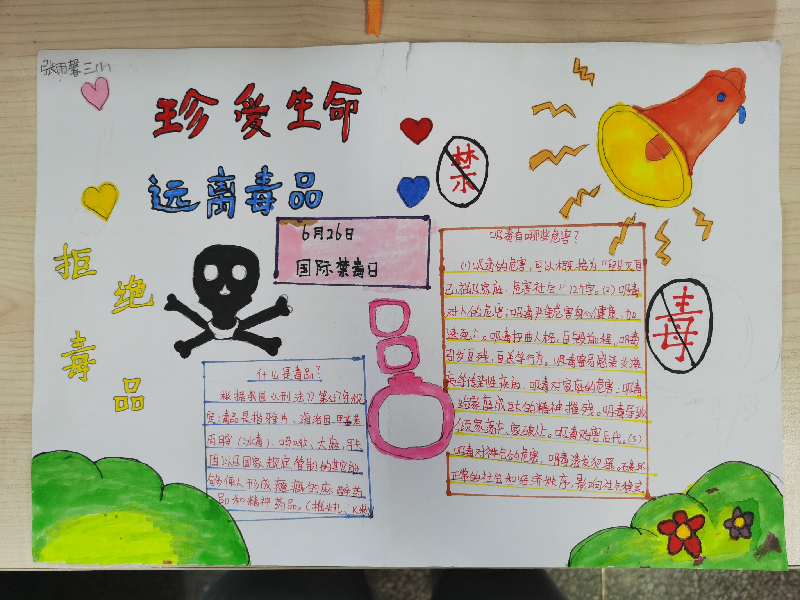 张雨馨三(1)
珍爱生命
远离毒品
禁
拒绝
毒品
6月26日
国际禁毒日
什么是毒品?
根据我国《刑法》第357条规
定,毒品是指鸦片、海洛因、甲基苯
丙胺(冰毒)、吗啡、大麻、可卡
因以及国家规定管制的其它能
够使人形成瘾癖的麻醉药
品和精神药品。(摇头丸、K粉
吸毒有哪些危害?
(1)吸毒的危害,可以概括为“自毁灭自
己、祸及家庭、危害社会”12个字。(2)吸毒
对人的危害:吸毒严重危害身心健康,加
速死亡。吸毒扭曲人格,自毁前程,吸毒
引发自残,自杀等行为。吸毒容易感染艾滋
病等传染性疾病。吸毒对家庭的危害:吸毒
给家庭成员的精神摧残。吸毒导致
倾家荡产、家破
吸毒贻害后代。(3)
吸毒对社会的危害,吸毒诱发犯罪。破坏
正常的社会和经济秩序,影响社会稳定
毒